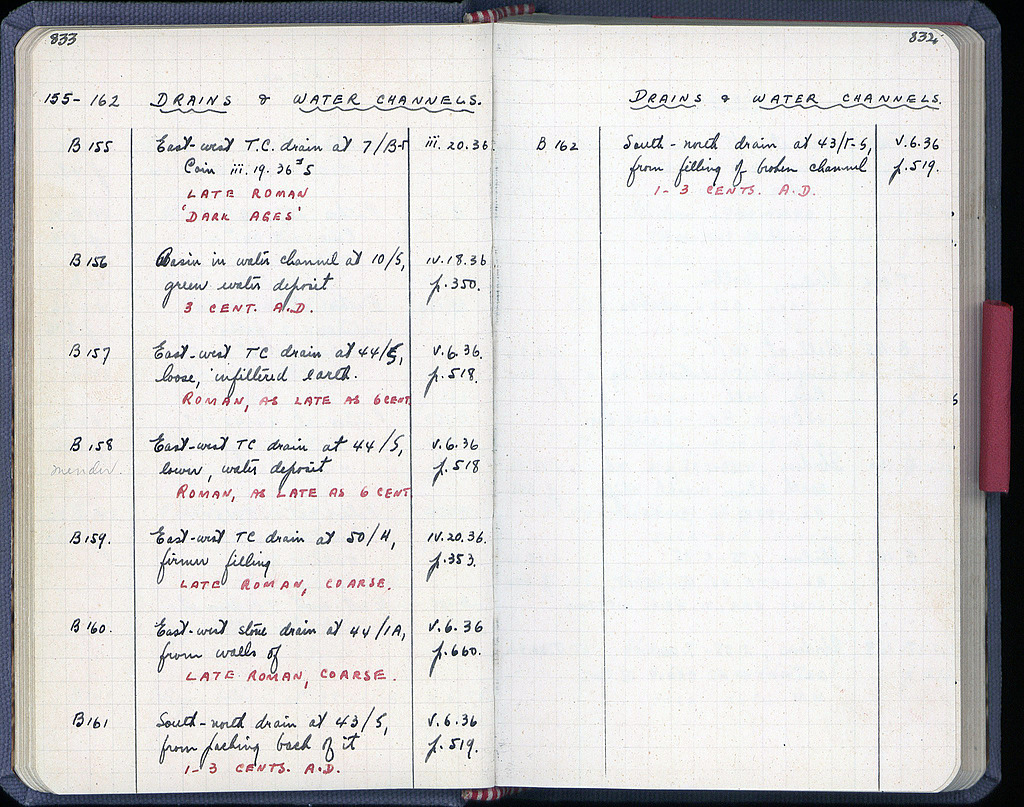 833
155-162 DRAINS & WATER CHANNELS.
B 155 East-west T.C. drain at 7/B-Γ iii.20.36
Coin iii.19.36 #5
LATE ROMAN
'DARK AGES'
B 156 Basin in water channel at 10/5, iv.18.36
green water deposit p.350.
3 CENT. A.D.
B 157 East-west TC drain at 44/5, v.6.36.
loose, infiltered earth. p.518.
ROMAN, AS LATE AS 6 CENT
B 158 East-west TC drain at 44/5, v.6.36
mender. lower, water deposit p.518
ROMAN, AS LATE AS 6 CENT
B 159. East-west TC drain at 50/H, iv.20.36.
firmer filling p.353.
LATE ROMAN, COARSE.
B 160. East-west stone drain at 44/1A, v.6.36
from walls of p.660.
LATE ROMAN, COARSE.
B 161 South-north drain at 43/5, v.6.36
from packing back of it p.519.
1-3 CENTS. A.D.
832
DRAINS & WATER CHANNELS.
B 162 South-north drain at 43/Γ-5, v.6.36
from filling of broken channel p.519.
1-3 CENTS. A.D.